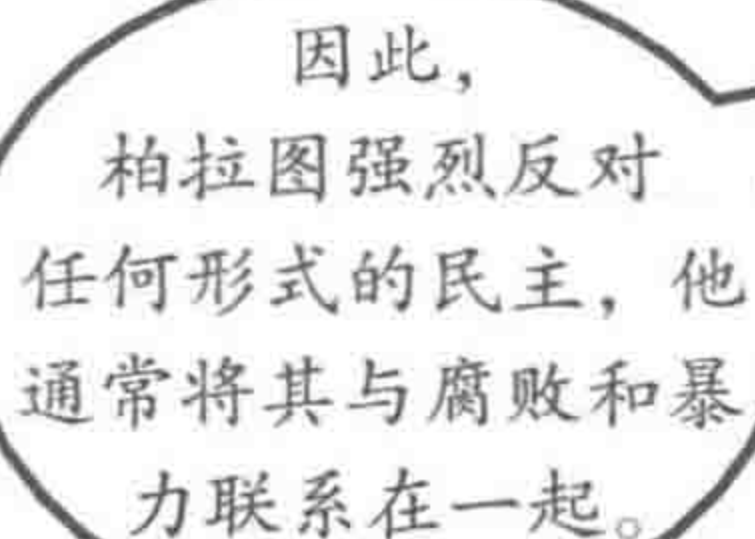 因此，
柏拉图强烈反对
任何形式的民主，他
通常将其与腐败和暴
力联系在一起。